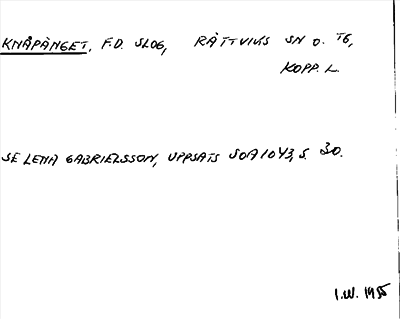 KNÅPÄNGET, F.D. SLOG, RÄTTVIKS SN O. TG,
KOPP. L.
SE LENA GABRIELSSON, UPPSATS SOA1043, S. 30.
I.W. 1985